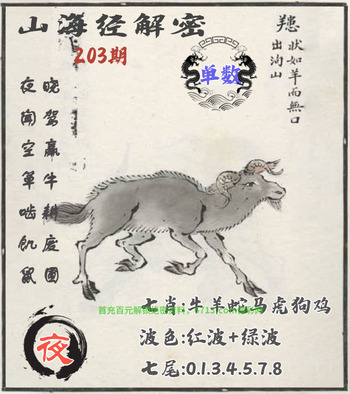 山海经解密
203期
单数
䍺状如羊而無口
出洵山
晚驾赢牛耕废圃
夜闻空箪啮饥鼠
首充百元
七肖:牛羊蛇马虎狗鸡
波色:红波+绿波
七尾:0.1.3.4.5.7.8
夜